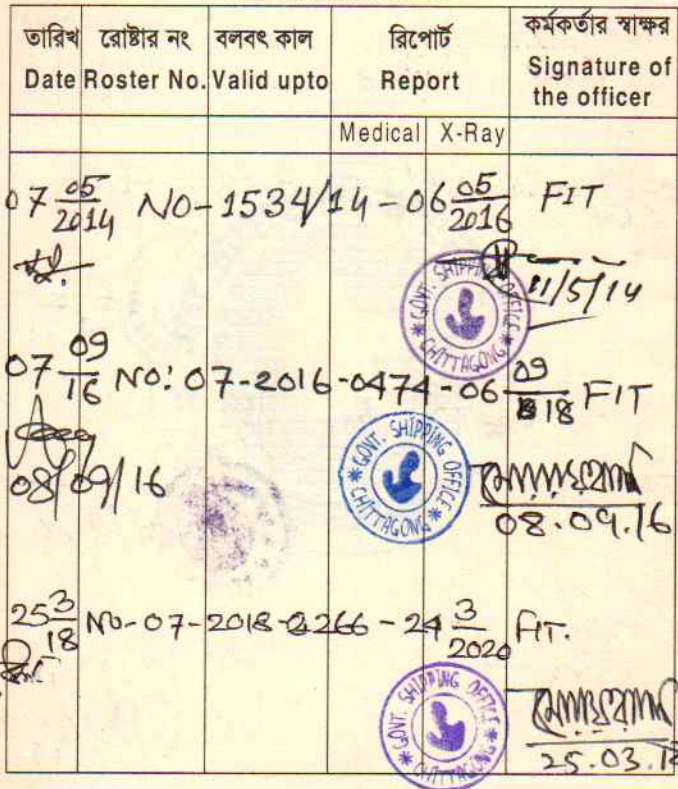 তারিখ রোষ্টার নং বলবৎ কাল রিপোর্ট কর্মকর্তার স্বাক্ষর
Date Roster No. Valid upto Report Signature of the officer
Medical X-Ray
07 05/2014 NO-1534/14 - 06 05/2016 FIT
11/5/14
GOVT. SHIPPING OFFICE
* CHITTAGONG *
07 09/16 NO: 07-2016-0474 - 06 09/18 FIT
08/09/16
GOVT. SHIPPING OFFICE
* CHITTAGONG *
08.09.16
25 3/18 NO-07-2018-0266 - 24 3/2020 FIT.
GOVT. SHIPPING OFFICE
* CHITTAGONG *
25.03.18